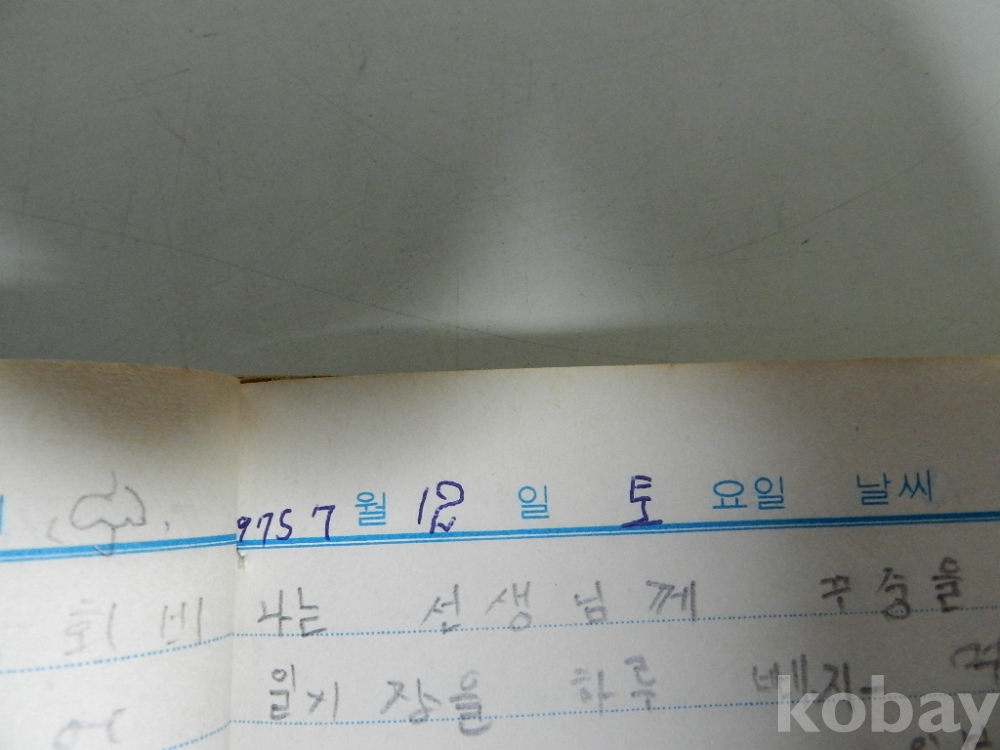 회 비
975 7 월 12 일 토 요일 날씨
나는 선생님께 꾸중을
일기장을 하루
kobay